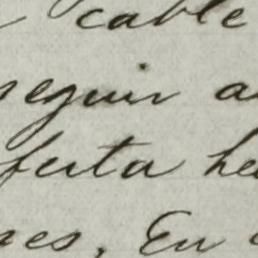 cable
seguir a
ferta he
nes, En